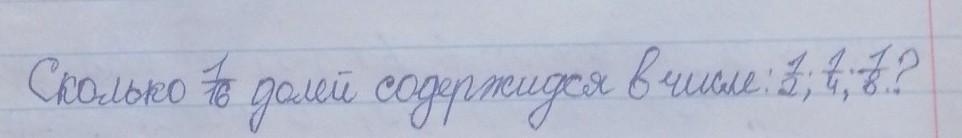 Сколько 1/16 долей содержидся в числе: 1/2; 1/4; 1/8?